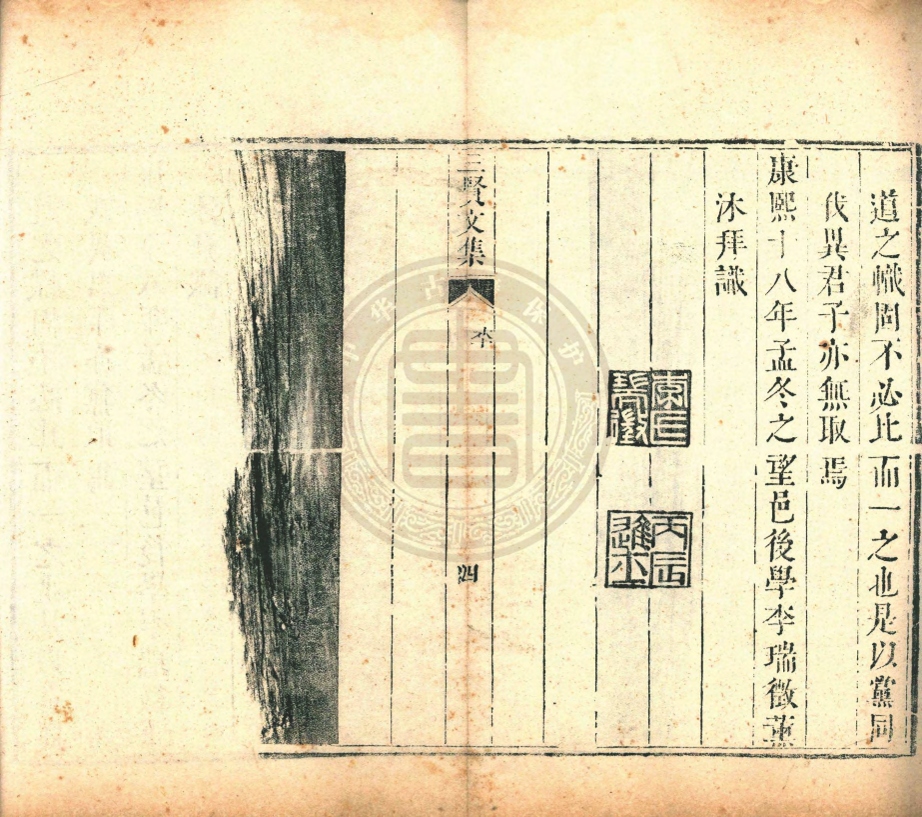 道之幟固不必比而一之也是以黨同
伐異君子亦無取焉
康熙十八年孟冬之望邑後學李瑞徵薰
沐拜識
丙辰
進士
三賢文集
李
四